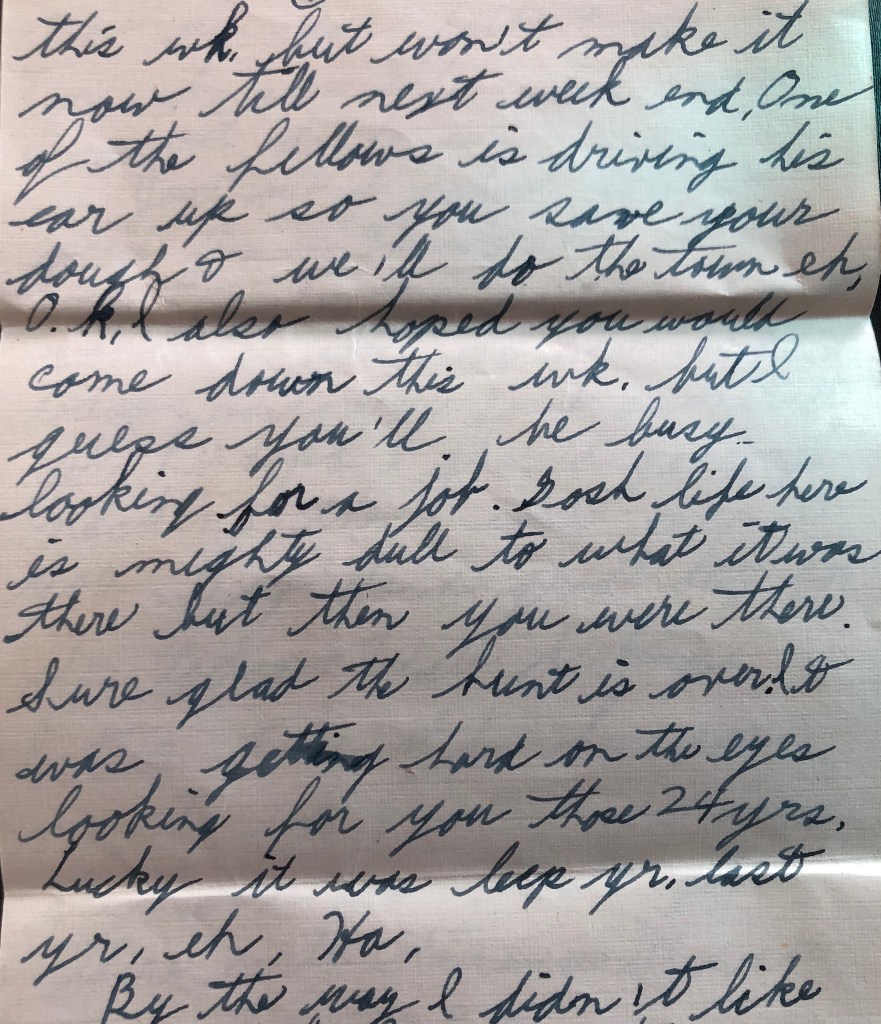 this wk. but won't make it
now till next week end, One
of the fellows is driving his
car up so you save your
dough & we'll do the town eh,
O.k, I also hoped you would
come down this wk. but I
guess you'll be busy
looking for a job. Gosh life here
is mighty dull to what it was
there but then you were there.
Sure glad the hunt is over. It
was getting hard on the eyes
looking for you those 24 yrs,
Lucky it was leep yr. last
yr, eh, Ha,
By the way I didn't like